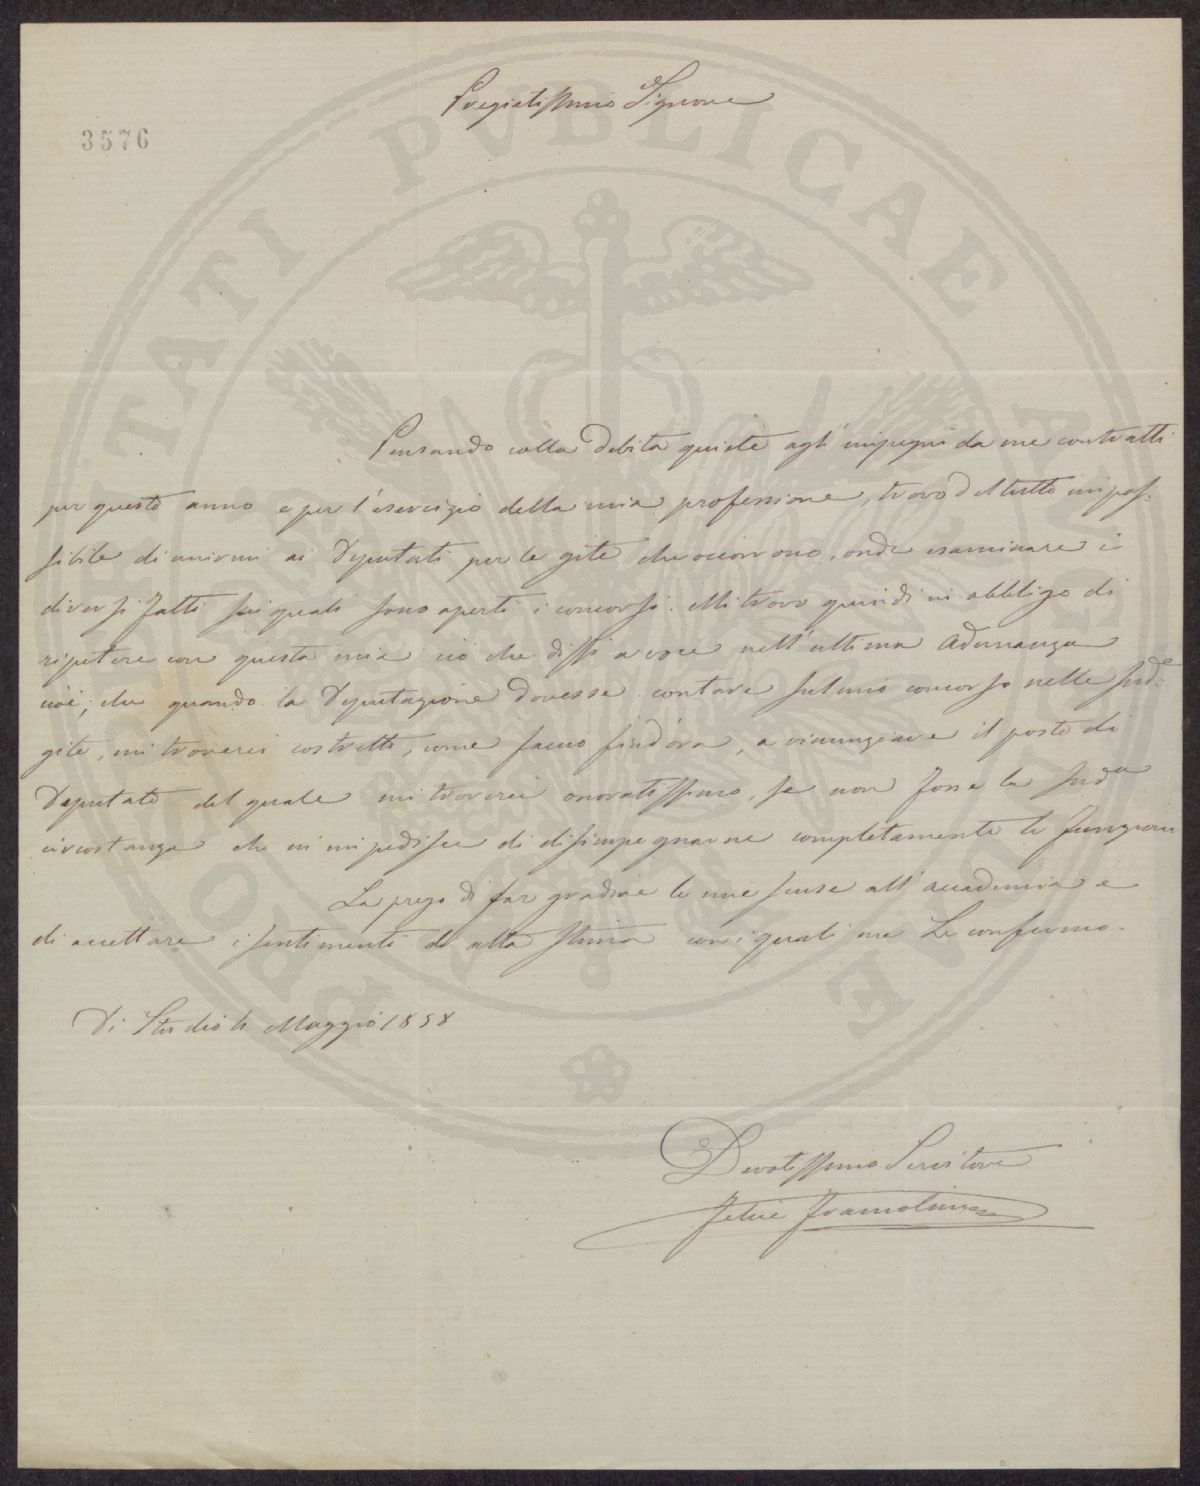 3576
Pregiatissimo Signore
Pensando colla debita quiete agl'impegni da me contratti
per questo anno e per l'esercizio della mia professione, trovo del tutto impos-
sibile di unirmi ai Deputati per le gite che occorrono, onde esaminare i
diversi fatti sui quali sono aperti i concorsi. Mi trovo quindi in obbligo di
ripetere con questa mia ciò che dissi a voce nell'ultima adunanza
cioè, che quando la Deputazione dovesse contare sul mio concorso nelle sudd.e
gite, mi troverei costretto, come faccio sin d'ora, a rinunziare il posto di
Deputato del quale mi troverei onoratissimo, se non fosse la sudd.a
circostanza che m'impedisce di disimpegnarne completamente le funzioni
La prego di far gradire le mie scuse all'accademia e
di accettare i sentimenti di alta stima con i quali me Le confermo.
Di Studio Maggio 1858
Devotissimo Servitore
Felice Francolini
PVBLICAE